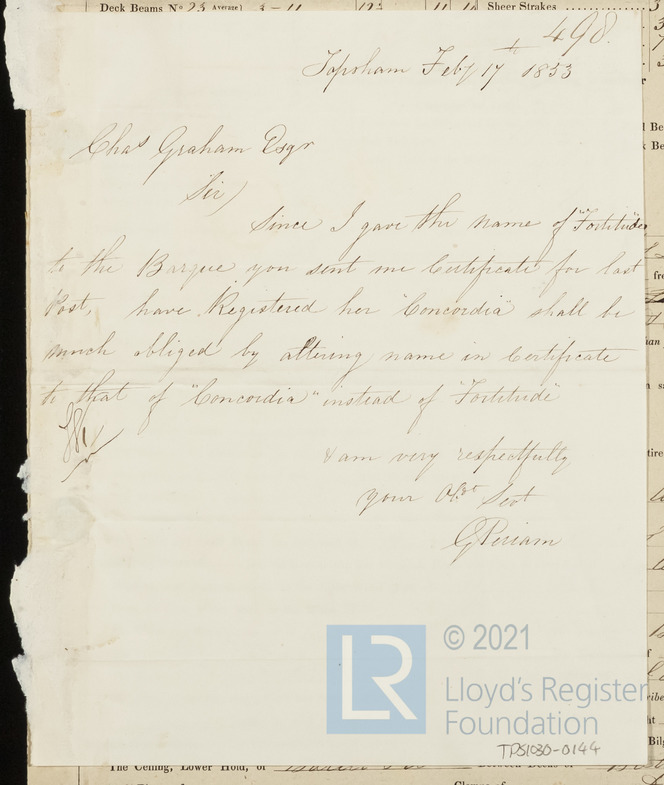 Deck Beams No 23 Average)
Sheer Strakes
498.
Topsham Feby 17th 1853
Chas Graham Esqr
Sir)
Since I gave the name of "Fortitude"
to the Barque you sent me Certificate for last
Post, have Registered her "Concordia" shall be
much obliged by altering name in Certificate
to that of "Concordia" instead of "Fortitude"
I am very respectfully
your Obt Sevt
G Periam
LR
© 2021
Lloyd's Register
Foundation
TPS1030-0144
The Ceiling, Lower Hold, of